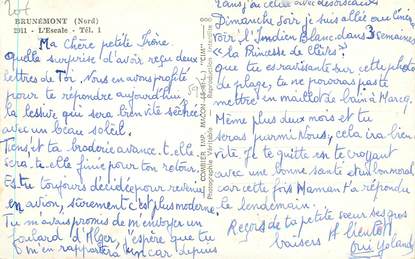 BRUNÉMONT (Nord)
2911 - L'Escale - Tél. 1
Ma Chère petite Irène.
Quelle surprise d'avoir reçu deux
lettres de Toi. Nous en avons profité
pour te répondre aujourd'hui
la lessive qui sera bien vite séchée
avec un beau soleil.
Tiens, et ta broderie avance-t-elle
sera-t-elle finie pour ton retour.
Es-tu toujours décidée pour revenir
en avion, sûrement c'est plus moderne.
Tu m'avais promis de m'envoyer un
foulard d'Alger, j'espère que tu
m'en rapportera un car depuis
COMBIER IMP. MACON (S.-&-L.) "CIM"
Dimanche soir je suis allé au ciné
voir l'Indien Blanc dans 3 semaines
"La Princesse de Clèves"
Que tu es ravissante sur cette photo
de plage, tu ne pourras pas te
mettre en maillot de bain à Marcq
Même plus deux mois et tu
seras parmi Nous, cela ira bien
vite. Je te quitte en te croyant
avec une bonne santé et un bon moral
car cette fois Maman t'a répondu
le lendemain.
Reçois de ta petite sœur ses gros
baisers A bientôt